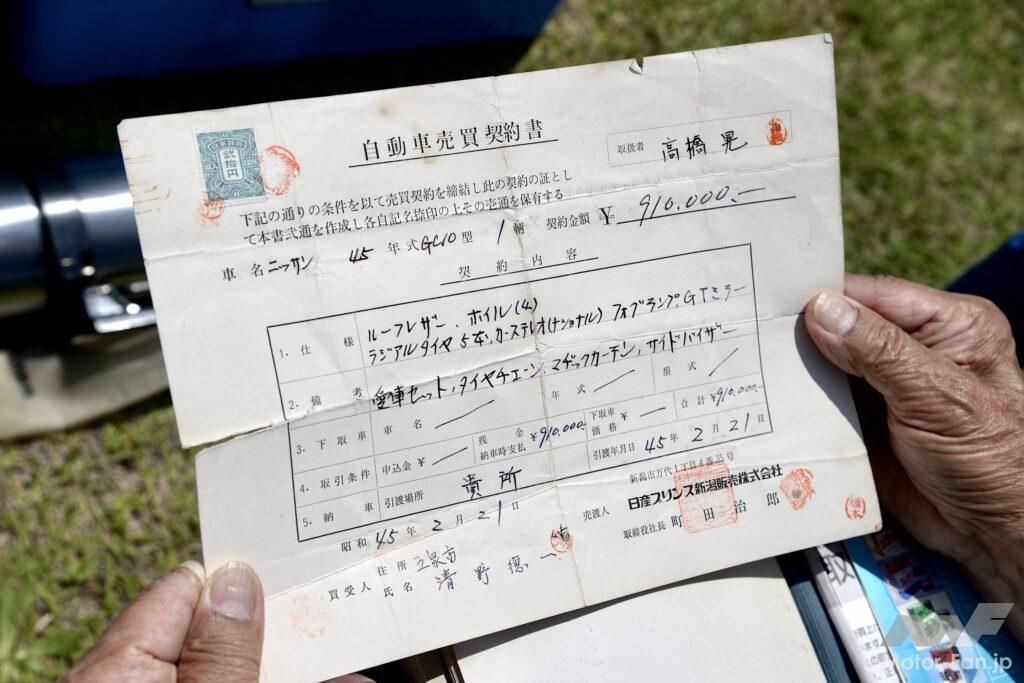 自動車売買契約書
弐拾円
取扱者 高橋晃
下記の通りの条件を以て売買契約を締結し此の契約の証とし
て本書弐通を作成し各自記名捺印の上その壱通を保有する
車名 ニッサン 45年式 GC10型 1輛 契約金額 ¥910.000.-
契約内容
1. 仕様 ルーフレザー、ホイル(4)
ラジアルタイヤ5本、カーステレオ(ナショナル) フォブランプ、GTミラー
2. 備考 愛車セット、タイヤチェーン、マヂックカーテン、サイドバイザー
3. 下取車 車名 年式 型式
4. 取引条件 申込金¥ 残金納車時支払 ¥910.000- 下取車価格¥ 合計¥910.000-
5. 納車 引渡場所 貴所 引渡年月日 45年2月21日
昭和45年2月21日
新潟市万代1丁目4番35号
売渡人 日産プリンス新潟販売株式会社
取締役社長 町田治郎
買受人 住所 五泉市
氏名 清野
取
Motor-Fan.jp